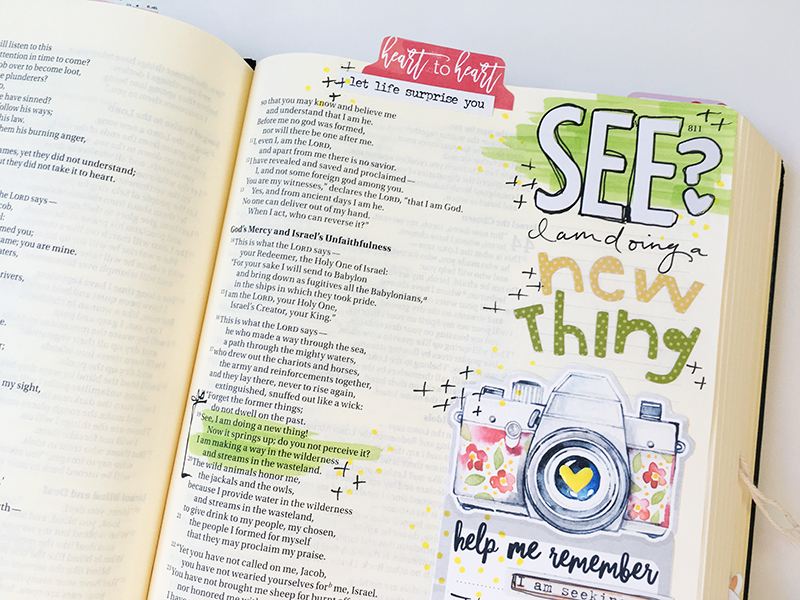 ill listen to this
attention in time to come?
ob over to become loot,
e plunderers?
have sinned?
follow his ways;
his law.
them his burning anger,
ames, yet they did not understand;
but they did not take it to heart.
LORD says—
cob,
el:
med you;
ame; you are mine.
aters,
rivers,
my sight,
rth—
heart to heart
let life surprise you
so that you may know and believe me
and understand that I am he.
Before me no god was formed,
nor will there be one after me.
11 I, even I, am the LORD,
and apart from me there is no savior.
12 I have revealed and saved and proclaimed—
I, and not some foreign god among you.
You are my witnesses,” declares the LORD, “that I am God.
13 Yes, and from ancient days I am he.
No one can deliver out of my hand.
When I act, who can reverse it?”
God’s Mercy and Israel’s Unfaithfulness
14 This is what the LORD says—
your Redeemer, the Holy One of Israel:
“For your sake I will send to Babylon
and bring down as fugitives all the Babylonians,a
in the ships in which they took pride.
15 I am the LORD, your Holy One,
Israel’s Creator, your King.”
16 This is what the LORD says—
he who made a way through the sea,
a path through the mighty waters,
17 who drew out the chariots and horses,
the army and reinforcements together,
and they lay there, never to rise again,
extinguished, snuffed out like a wick:
18 “Forget the former things;
do not dwell on the past.
19 See, I am doing a new thing!
Now it springs up; do you not perceive it?
I am making a way in the wilderness
and streams in the wasteland.
20 The wild animals honor me,
the jackals and the owls,
because I provide water in the wilderness
and streams in the wasteland,
to give drink to my people, my chosen,
21 the people I formed for myself
that they may proclaim my praise.
22 “Yet you have not called on me, Jacob,
you have not wearied yourselves forb me, Israel.
23 You have not brought me sheep for burnt
nor honored me
I have
811
SEE?
I am doing a
new
Thing
help me remember
I am seekin